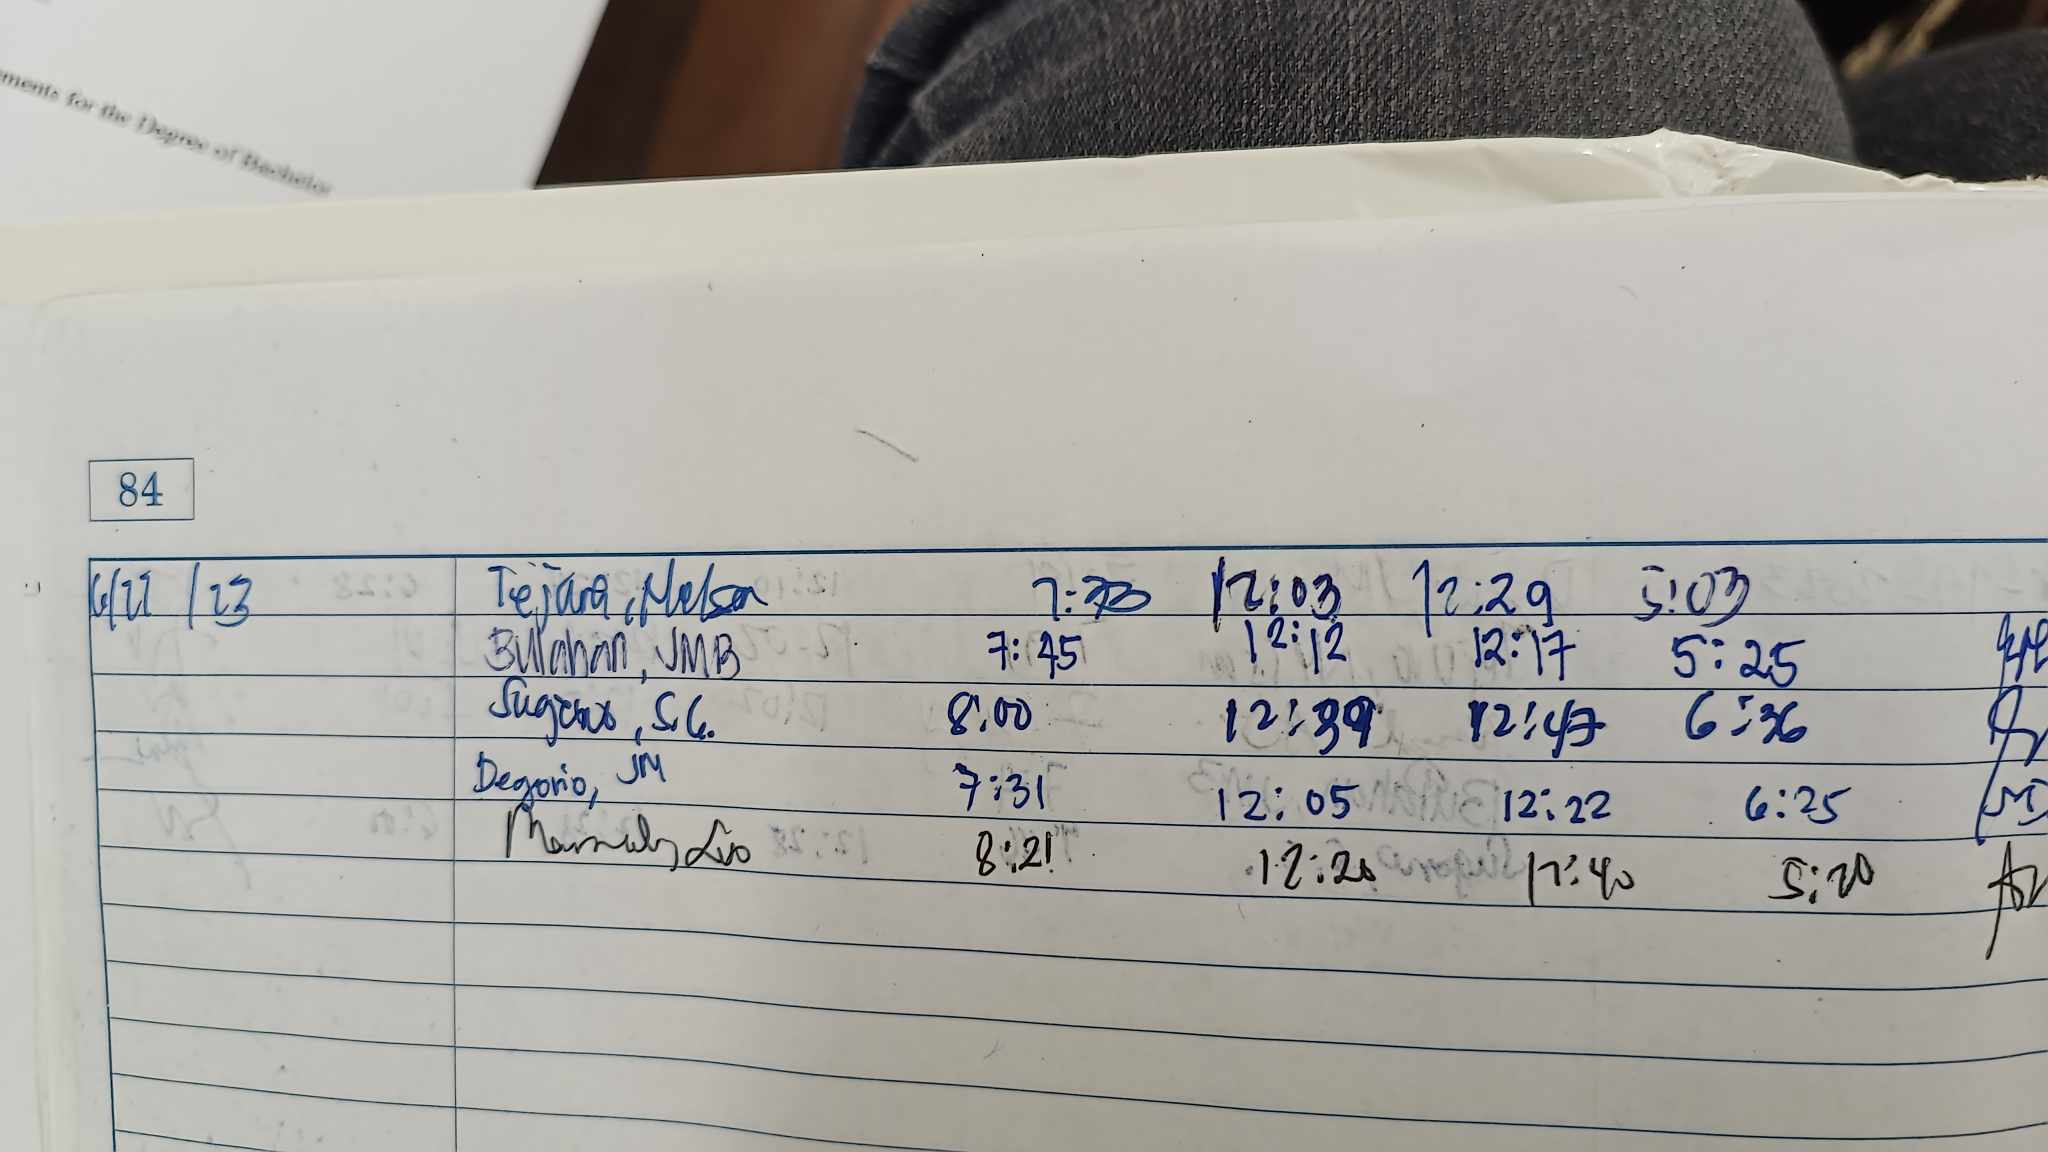 ments for the Degree of Bachelor
84
6/22/23 Tejara, Nelson 7:33 12:03 12:29 5:03
Bulahan, JMB 7:45 12:12 12:17 5:25
S.C. 8:00 12:39 12:47 6:36
Degorio, JM 7:31 12:05 12:22 6:25
8:21 12:20 12:40 5:20